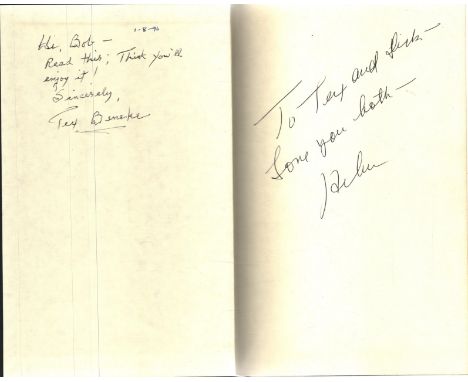 1-8-96
Hi, Bob —
Read this; Think you'll
enjoy it!
Sincerely,
Tex Beneke
To Tex and Dick —
Love you both —
Helen